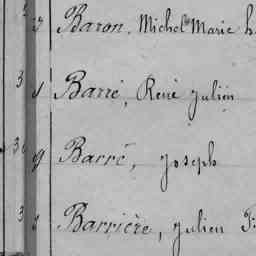 Baron, Michel Marie
Barré, René Julien
Barré, Joseph
Barrière, Julien